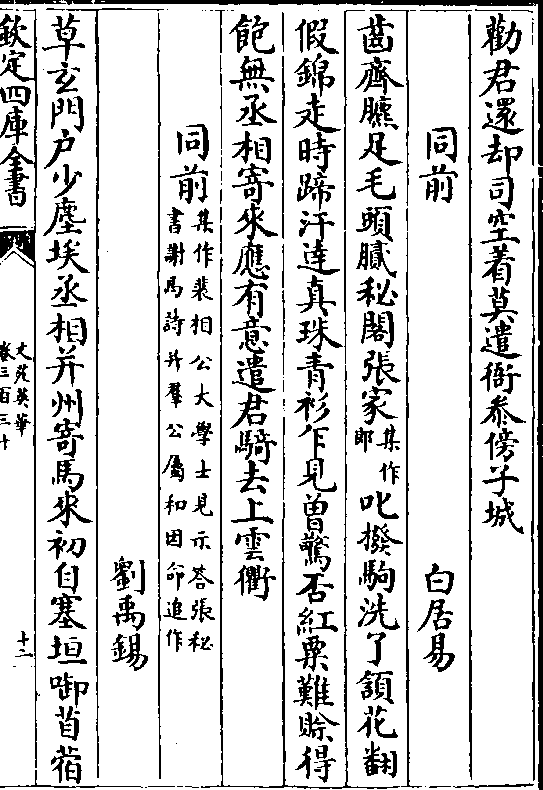 勸君還却司空着莫遣衙叅傍子城
同前　白居易
齒齊臕足毛頭膩秘閣張家集作郎叱撥駒洗了頷花翻
假錦走時蹄汗逹真珠青衫乍見曽驚否紅粟難賒得
飽無丞相寄來應有意遣君騎去上雲衢
同前集作裴相公大學士見示答張秘書謝馬詩并羣公屬和因命追作
劉禹錫
草玄門户少塵埃丞相并州寄馬來初自塞垣㗸苜蓿
欽定四庫全書
文苑英華
卷三百三十
十二